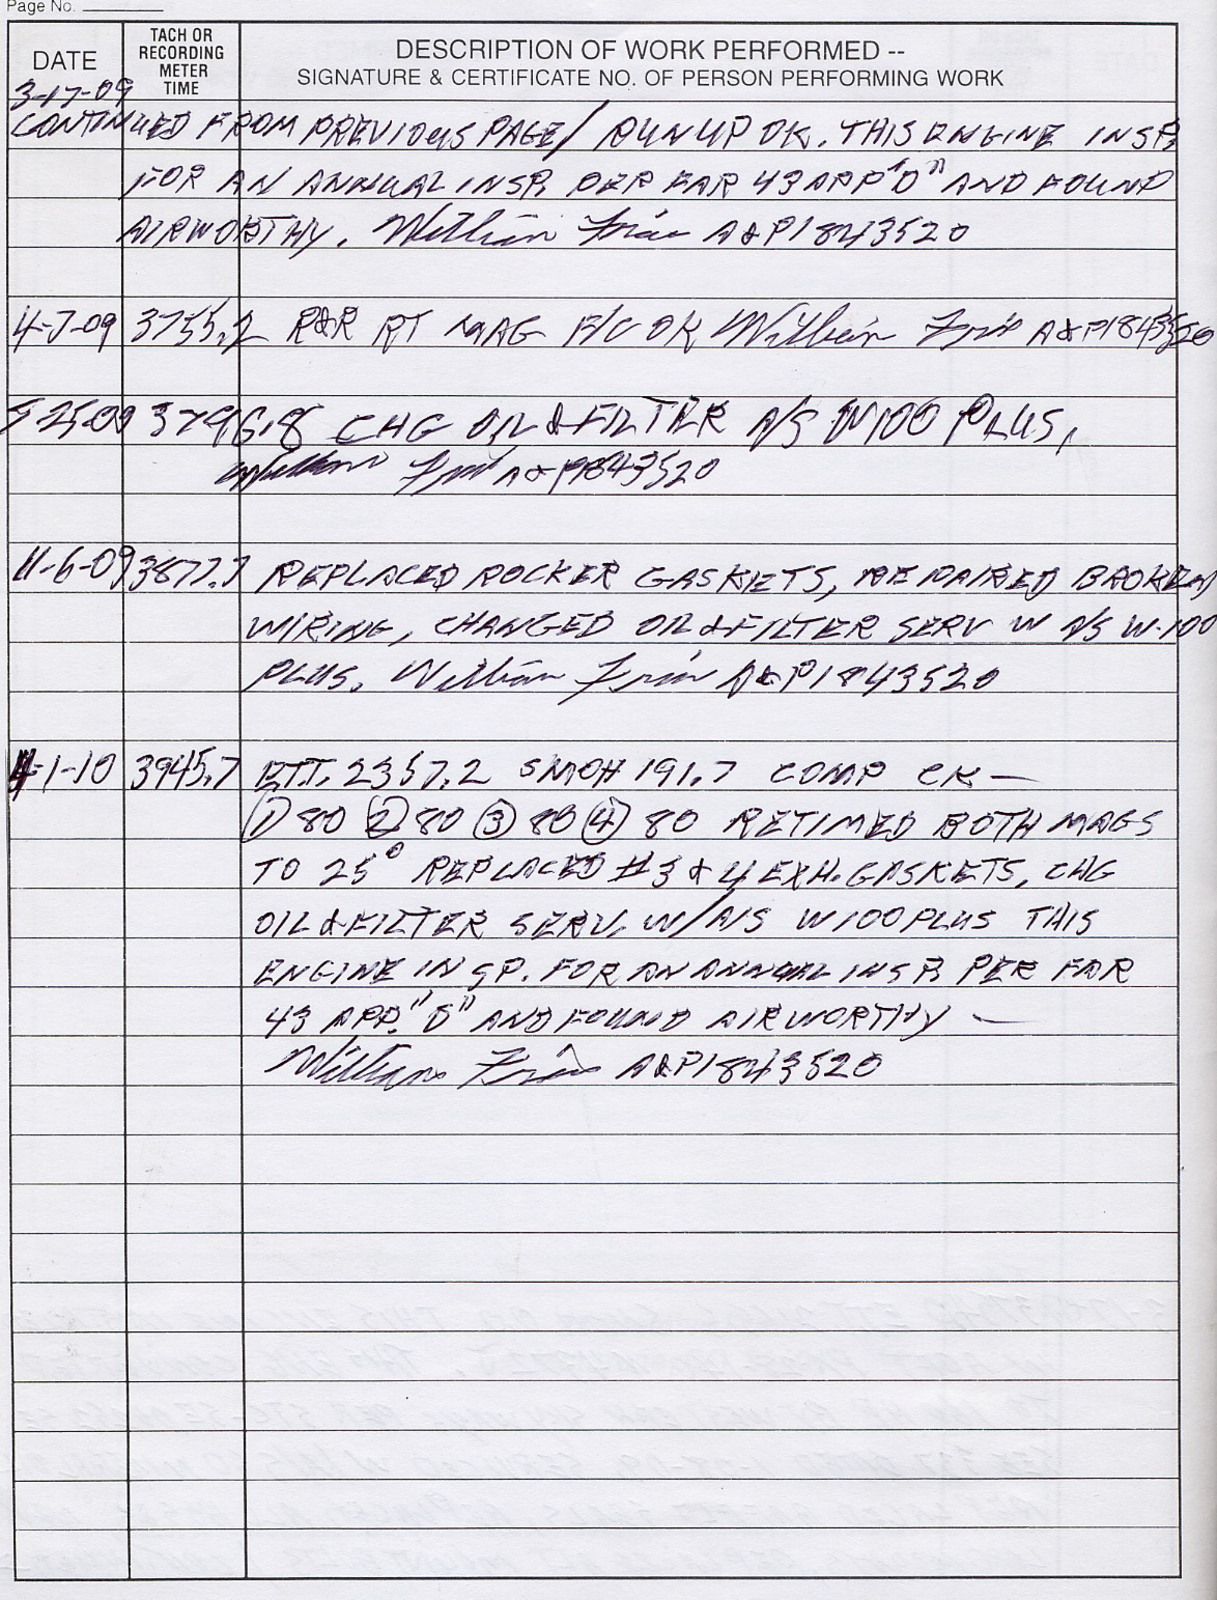 Page No.
DATE
TACH OR
RECORDING
METER
TIME
DESCRIPTION OF WORK PERFORMED --
SIGNATURE & CERTIFICATE NO. OF PERSON PERFORMING WORK
3-17-09
CONTINUED FROM PREVIOUS PAGE/ RUNUP OK. THIS ENGINE INSP.
FOR AN ANNUAL INSP. PER FAR 43 APP "D" AND FOUND
AIRWORTHY. William A&P1843520
4-7-09 3755.2 R&R RT MAG F/C OK William A&P1843520
5-25-09 3796.8 CHG OIL & FILTER A/S W100 PLUS,
William A&P1843520
11-6-09 3877.7 REPLACED ROCKER GASKETS, REPAIRED BROKEN
WIRING, CHANGED OIL & FILTER SERV W A/S W-100
PLUS. William A&P1843520
4-1-10 3945.7 ETT. 2357.2 SMOH 191.7 COMP CK —
① 80 ② 80 ③ 80 ④ 80 RETIMED BOTH MAGS
TO 25° REPLACED #3 & 4 EXH. GASKETS, CHG
OIL & FILTER SERV. W/A/S W100PLUS THIS
ENGINE INSP. FOR AN ANNUAL INSP. PER FAR
43 APP. "D" AND FOUND AIRWORTHY —
William A&P1843520